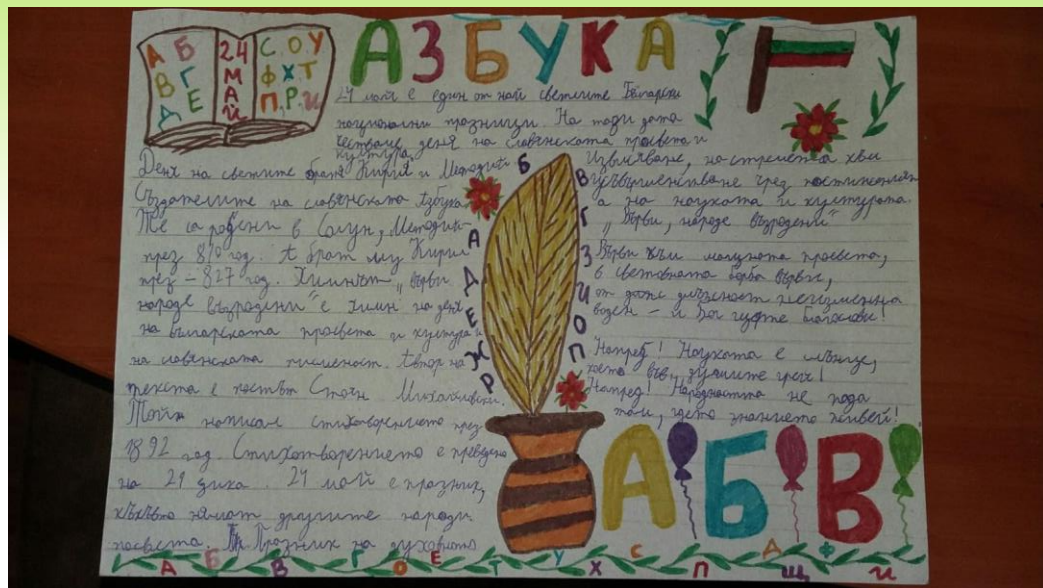 АЗБУКА
А Б
В Г
Д Е
24
МАЙ
С О У
Ф Х Т
П Р И
24 май е един от най светлите Български
национални празници. На тази дата
честваме деня на славянската просвета и
култура,
Деня на светите братя Кирил и Методий
Създателите на славянската Азбука.
Те са родени в Солун, Методий
през 810 год. А брат му Кирил
през – 827 год. Химнът „Върви
народе възродени" е химн на деня
на българската просвета и култура и
на славянската писменост. Автор на
текста е поетът Стоян Михайловски.
Той написал стихотворението през
1892 год. Стихотворението е преведено
на 29 езика. 24 май е празник,
какъвто нямат другите народи
по света. Празник на духовното
Извисяване, на стремежа към
усъвършенстване чрез постижения
а на науката и културата.
„Върви, народе възродени"
Върви към мощната просвета,
в световната борба върви,
от длъжност неизменна
воден – и Бог ще те благослови!
Напред! Науката е слънце,
което във душите грей!
Напред! Народността не пада
там, гдето знанието живей!
Б
А
Д
Е
Ж
Р
В
Г
З
И
О
П
А Б В
А Б В Г О Е Т У Х С П Д Щ Ф И